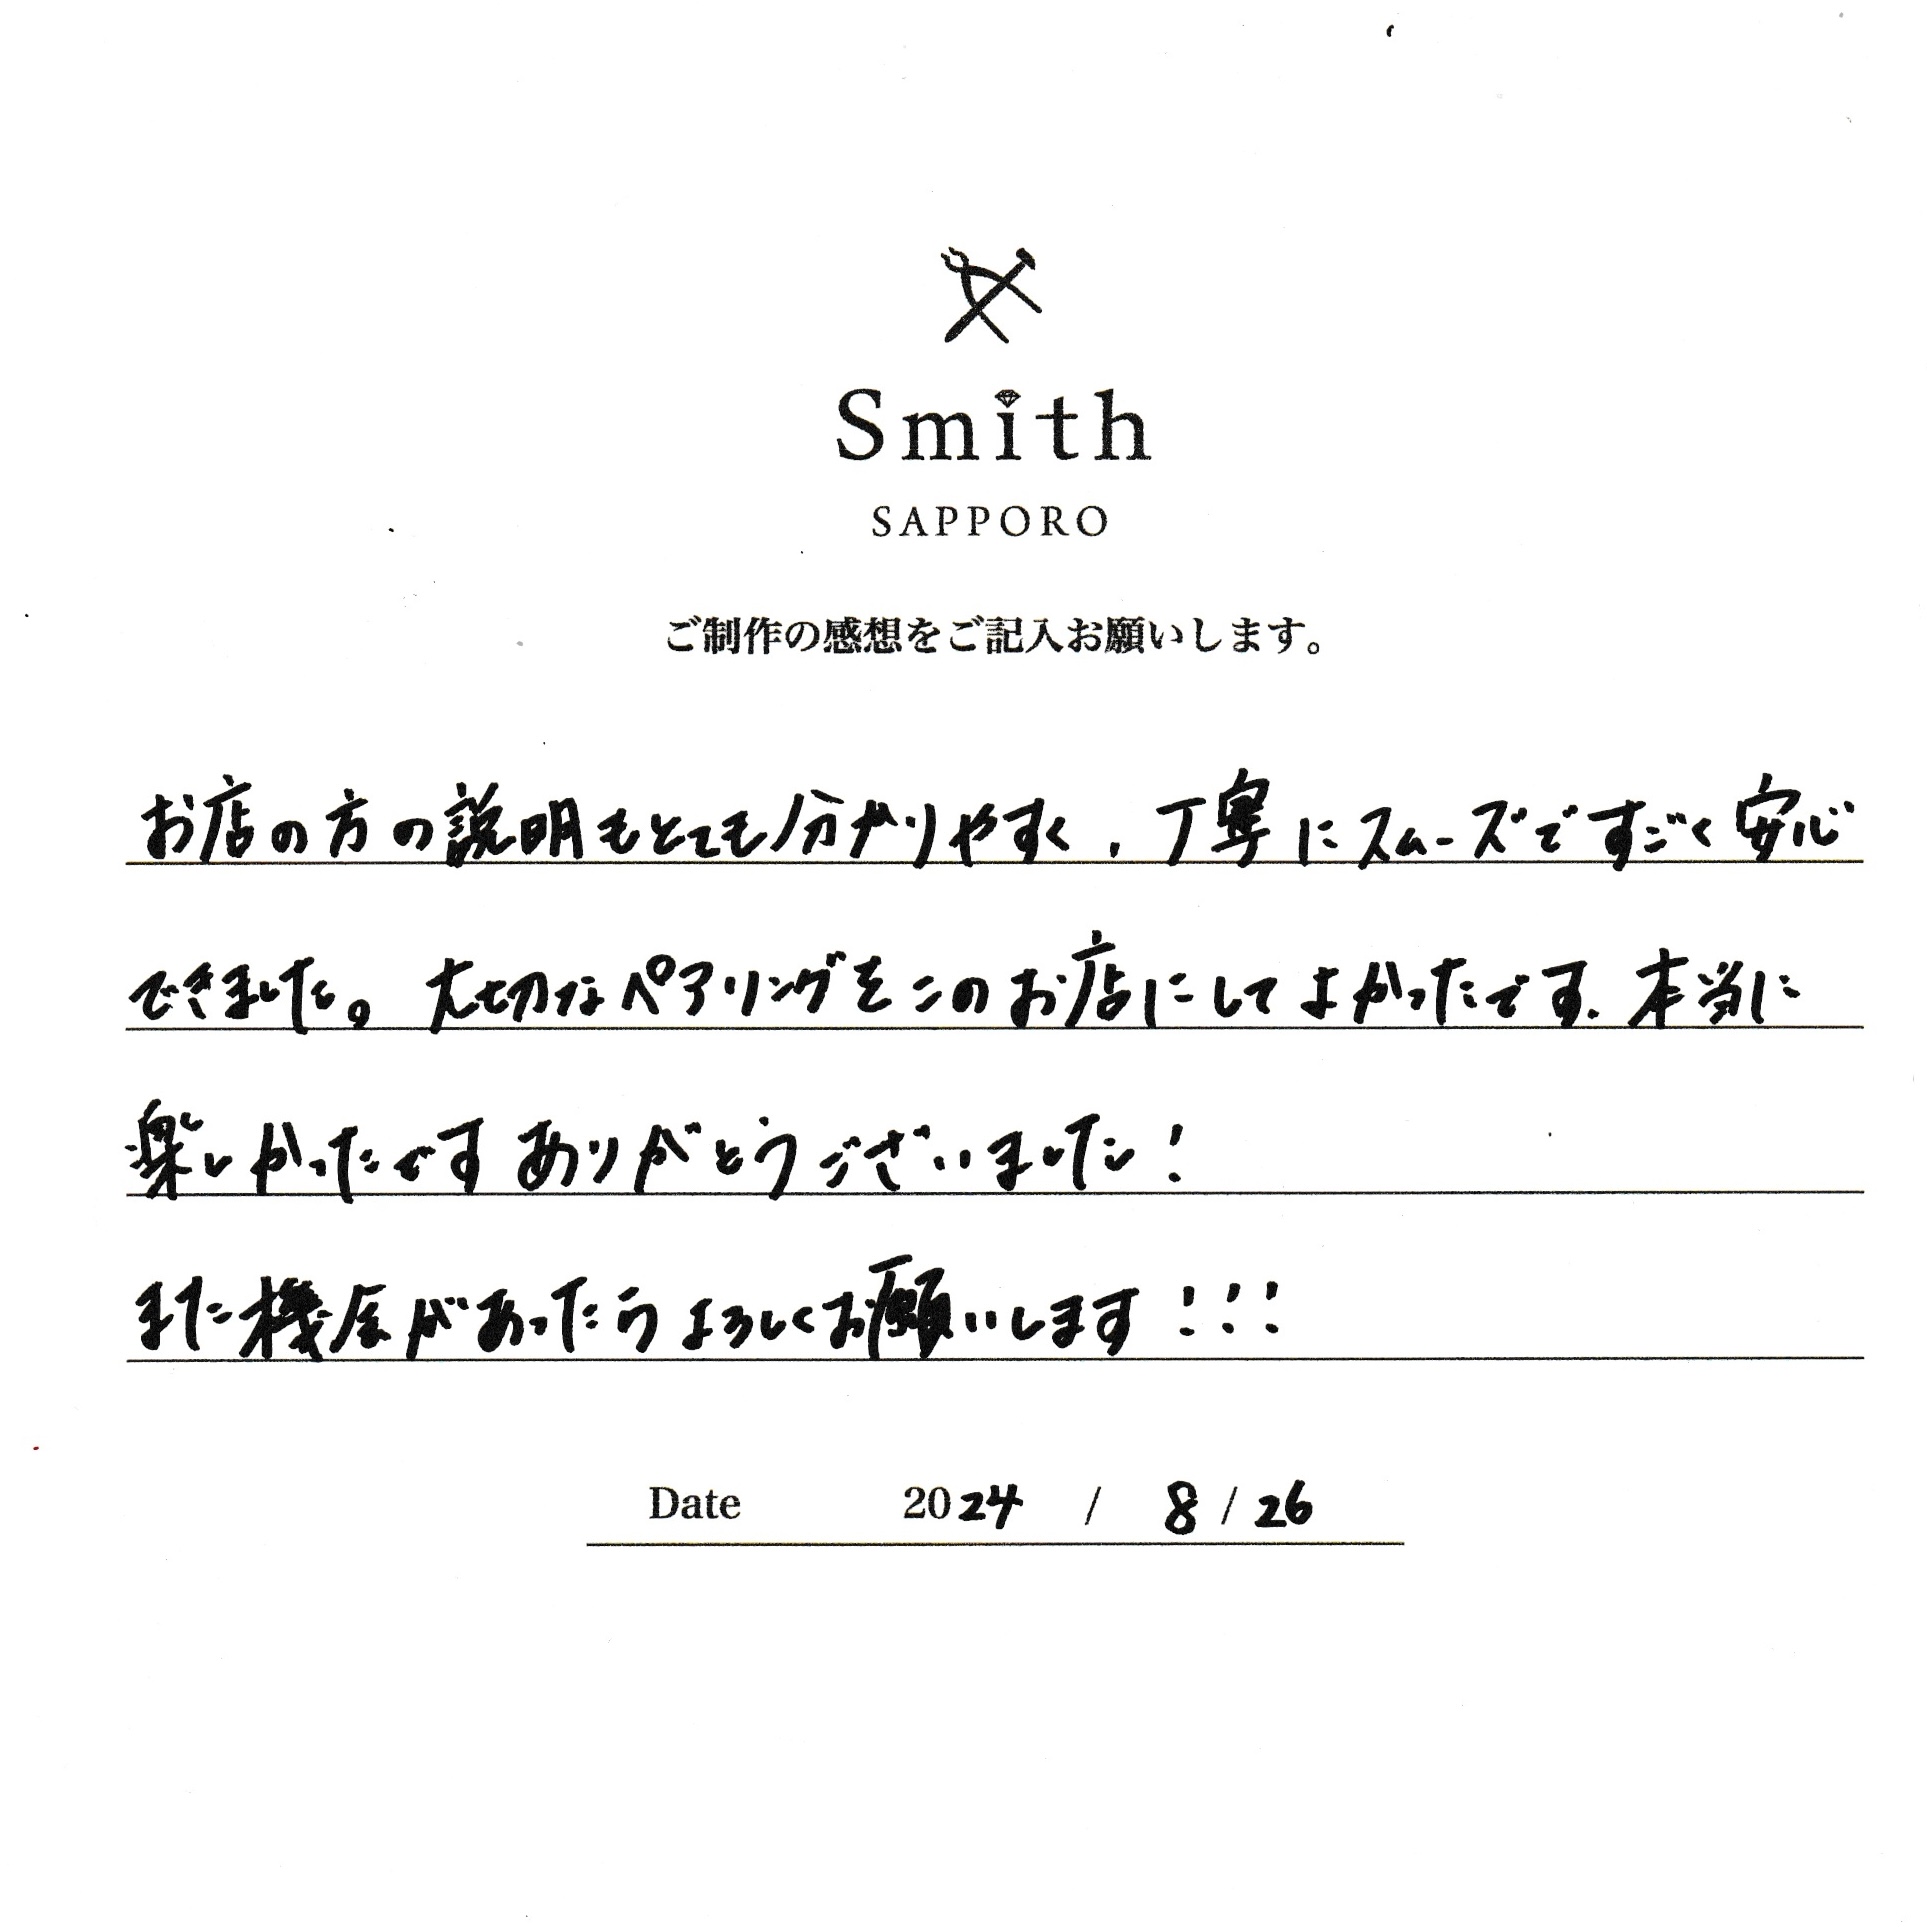 Smith
SAPPORO
ご制作の感想をご記入お願いします。
お店の方の説明もとても分かりやすく、丁寧にスムーズですごく安心
できました。大切なペアリングをこのお店にしてよかったです.本当に
楽しかったです ありがとうございました!
また機会があったら よろしくお願いします!!!
Date 2024 / 8 / 26